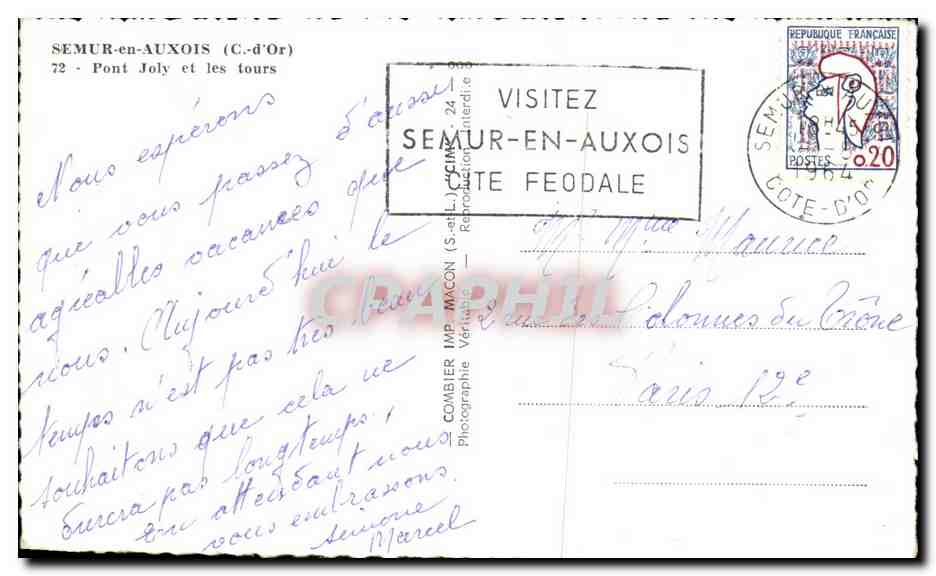 SEMUR-en-AUXOIS (C.-d'Or)
72 - Pont Joly et les tours
Nous espérons
que vous passez d'aussi
agréables vacances que
nous. Aujourd'hui le
temps n'est pas très beau
souhaitons que cela ne
durera pas longtemps,
en attendant nous
vous embrassons.
Simone
Marcel
COMBIER IMP. MACON (S.-et-L.) "CIM" - 24 - 000
Photographie Véritable - Reproduction Interdite
VISITEZ
SEMUR-EN-AUXOIS
CITE FEODALE
REPUBLIQUE FRANÇAISE
POSTES 0.20
SEMUR
18H45
1964
COTE-D'OR
Mr Mme Maurice
2 rue des Colonnes du Trône
Paris 12e
CPAPHIL